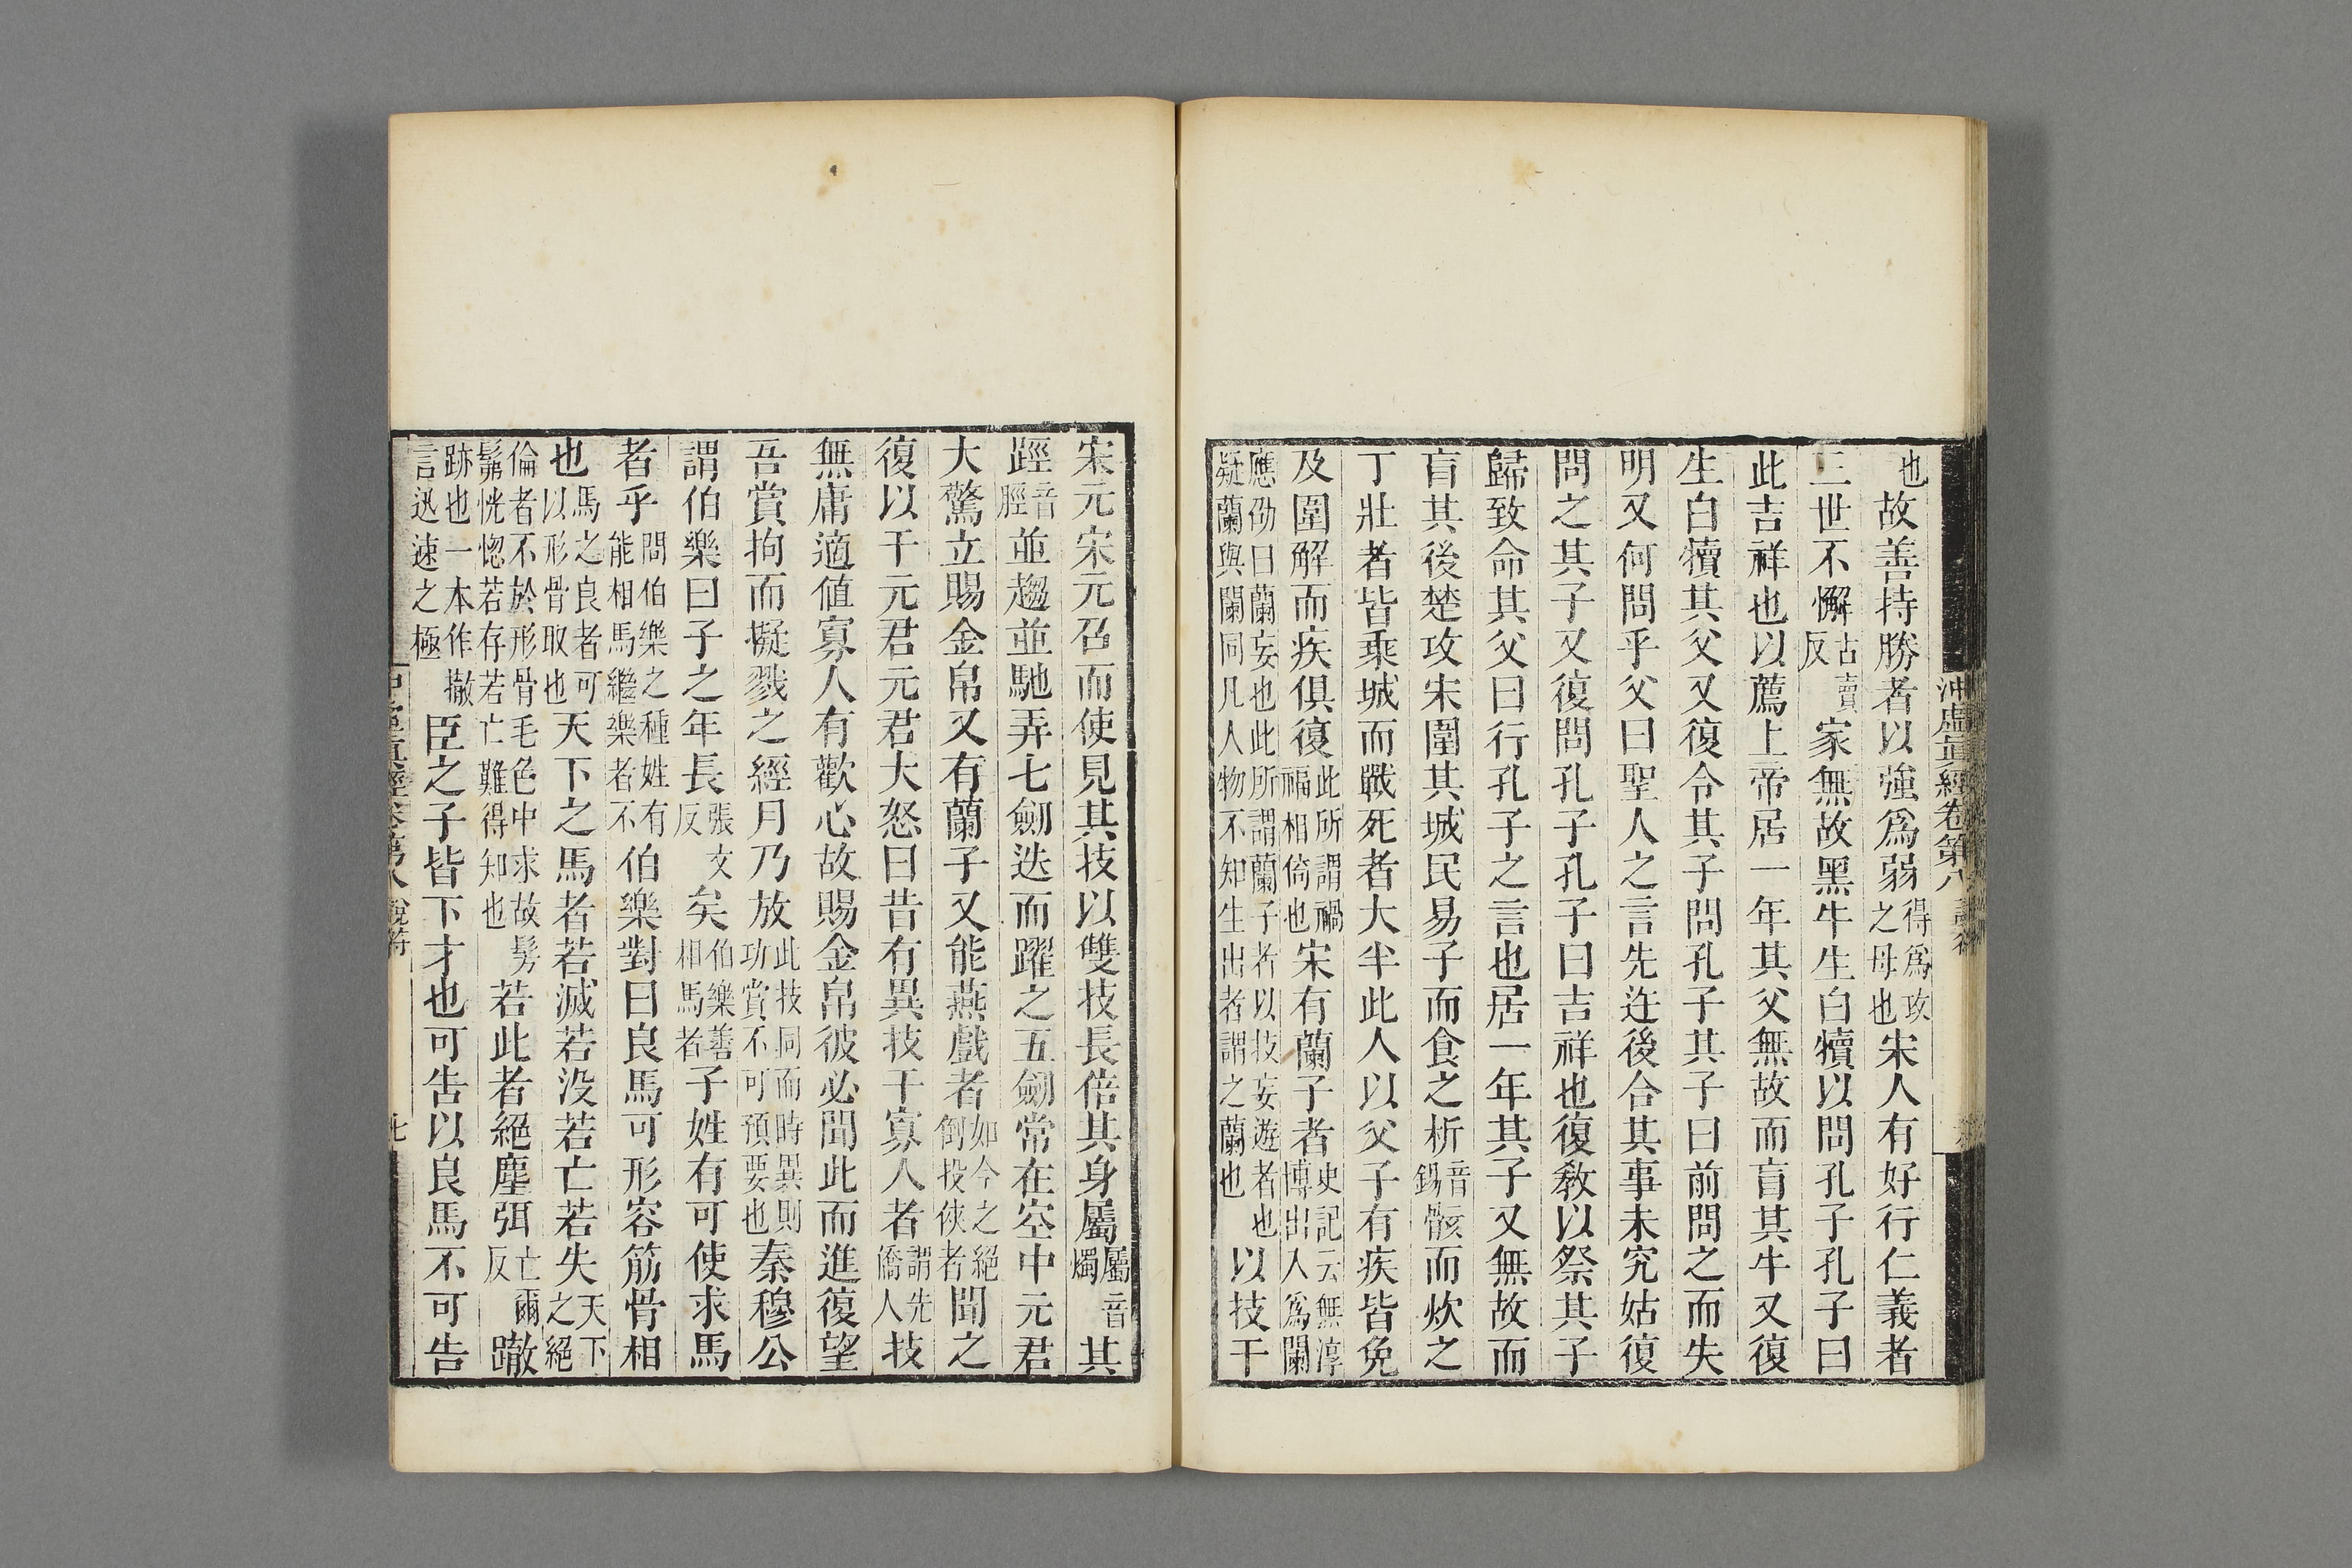 沖虛眞經卷第八
也故善持勝者以強爲弱得爲攻之母也宋人有好行仁義者
三世不懈古賣反家無故黑牛生白犢以問孔子孔子曰
此吉祥也以薦上帝居一年其父無故而盲其牛又復
生白犢其父又復令其子問孔子其子曰前問之而失
明又何問乎父曰聖人之言先迕後合其事未究姑復
問之其子又復問孔子孔子曰吉祥也復敎以祭其子
歸致命其父曰行孔子之言也居一年其子又無故而
盲其後楚攻宋圍其城民易子而食之析音錫骸而炊之
丁壯者皆乘城而戰死者大半此人以父子有疾皆免
及圍解而疾俱復此所謂禍福相倚也宋有蘭子者史記云無淳博出入爲闌
應劭曰蘭妄也此所謂蘭子者以技妄遊者也疑蘭與闌同凡人物不知生出者謂之蘭也以技干
宋元宋元召而使見其技以雙技長倍其身屬屬音燭其
踁音脛並趨並馳弄七劒迭而躍之五劒常在空中元君
大驚立賜金帛又有蘭子又能燕戲者如今之絕倒投俠者聞之
復以干元君元君大怒曰昔有異技干寡人者謂先僑人技
無庸適値寡人有歡心故賜金帛彼必聞此而進復望
吾賞拘而擬戮之經月乃放此技同而時異則功賞不可預要也秦穆公
謂伯樂曰子之年長張丈反矣伯樂善相馬者子姓有可使求馬
者乎問伯樂之種姓有能相馬繼樂者不伯樂對曰良馬可形容筋骨相
也馬之良者可以形骨取也天下之馬者若滅若没若亡若失天下之絕
倫者不於形骨毛色中求故髣髴恍惚若存若亡難得知也若此者絕塵弭亡爾反𨅊
跡也一本作撤言迅速之極臣之子皆下才也可告以良馬不可告
沖虛眞經卷第八 說符
七